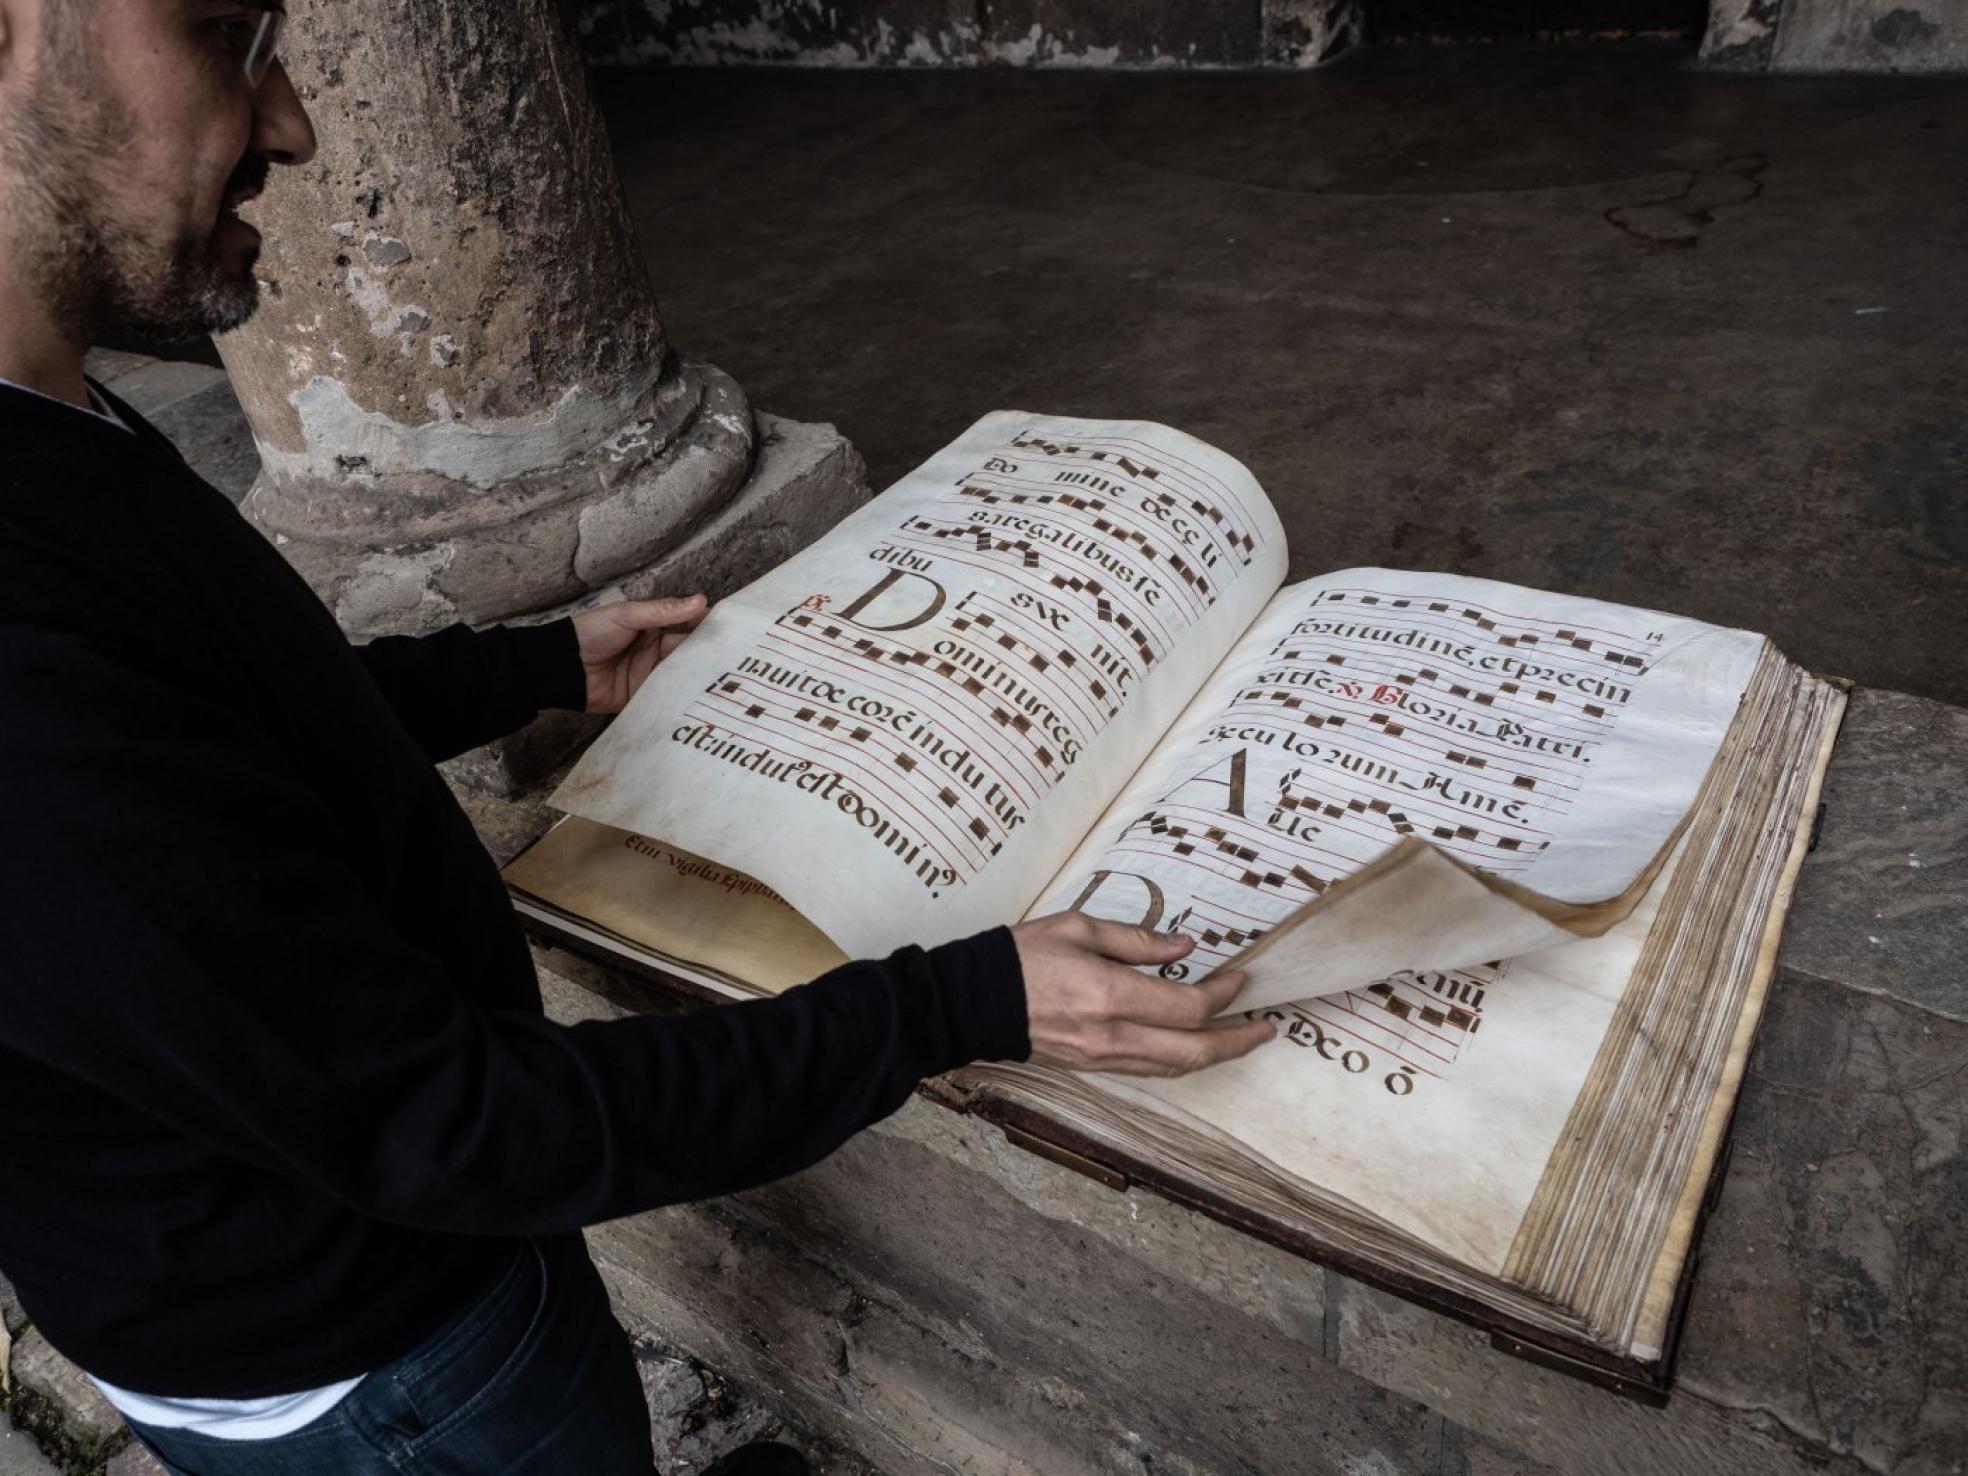 Do mine de eç li
sa regalibus sē
dibu sve nit.
℣. Dominus reg
nauit decorē indu tus
est: indutꝰ est domin⁹
Et in vigilia Epipha
14
fortitudinē, et precin
xit sē. ℣ Gloria Patri.
Seculorum Amē.
A Ue
D
o
enū
De o ō